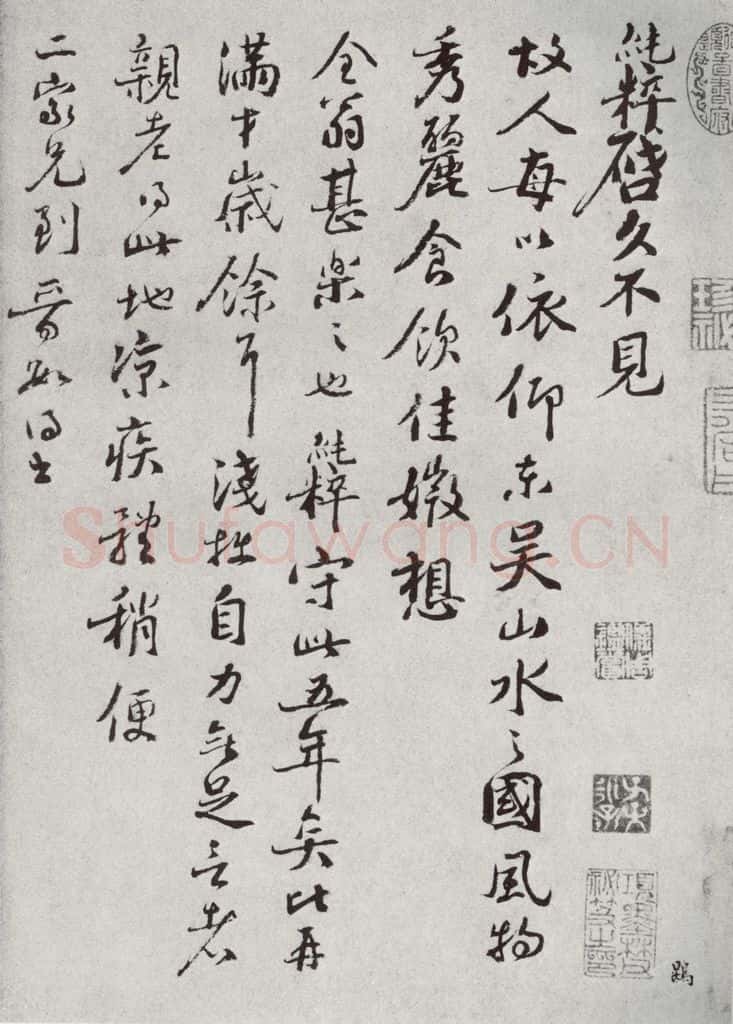 純粹啓久不見
故人每以依仰東吳山水之國風物
秀麗食飲佳媺想
仝翁甚樂之也純粹守此五年矣比再
滿才歲餘耳淺拙自力無足言者
親老得此地涼疾體稍便
二家兄到晉如得書
Shufawang.CN